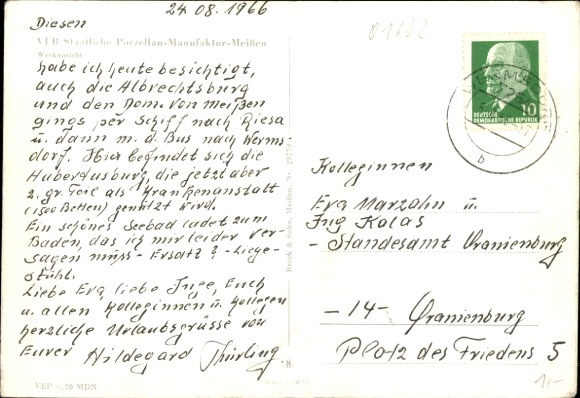 24.08.1966
Diesen
VEB Staatliche Porzellan-Manufaktur-Meißen
Werkansicht
habe ich heute besichtigt,
auch die Albrechtsburg
und den Dom. Von Meißen
gings per Schiff nach Riesa
u. dann m. d. Bus nach Werms
dorf. Hier befindet sich die
Hubertusburg, die jetzt aber
z. gr. Teil als Krankenanstalt
(1500 Betten) genutzt wird.
Ein schönes Seebad ladet zum
Baden, das ich mir leider ver
sagen muß - Ersatz? - Liege-
stühl.
Liebe Eva, liebe Inge, Euch
u. allen Kolleginnen u. Kollegen
herzliche Urlaubsgrüsse von
Eurer Hildegard Thürling.
VEP -,20 MDN
Brück & Sohn, Meißen, Nr.
01662
10
DEUTSCHE
DEMOKRATISCHE REPUBLIK
b
Kolleginnen
Eva Marzahn u.
Ing Kalas
- Standesamt Oranienburg
- 14 - Oranienburg
Platz des Friedens 5
1,-